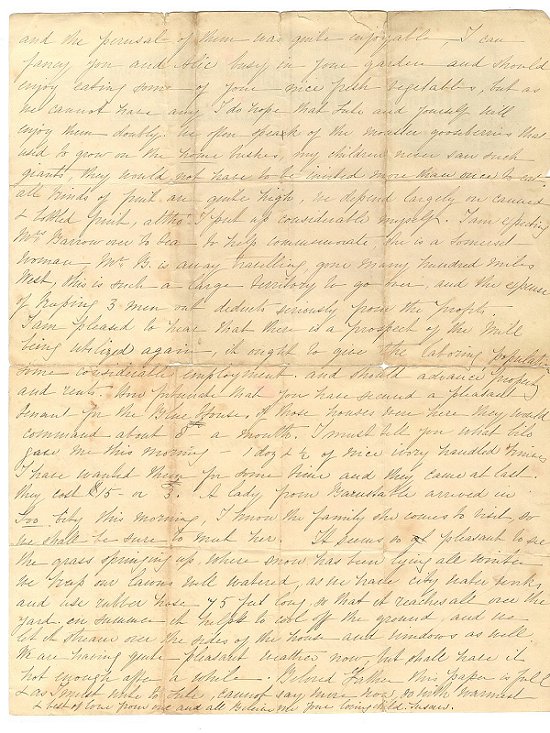 and the perusal of them was quite enjoyable, I can
fancy you and Alice busy in your garden and should
enjoy eating some of your nice fresh vegetables, but as
we cannot have any I do hope that and yourself will
enjoy them doubly. We often speak of the monster gooseberries that
used to grow on the home bushes, my children never saw such
giants, they would not have to be invited more than once to eat
all kinds of fruit are quite high, we depend largely on canned
& bottled fruit, altho' I put up considerable myself. I am expecting
Mrs Barrow over to tea to help commemorate, she is a Somerset
woman Mr. B. is away travelling gone many hundred miles
West, this is such a large territory to go over, and the expense
of keeping 3 men out deducts seriously from the profits.
I am pleased to hear that there is a prospect of the Mill
being utilized again, it ought to give the laboring population
some considerable employment. and should advance property
and rents. How fortunate that you have secured a pleasant
tenant for the Blue House. If those houses were here they would
command about a month. I must tell you what
gave me this morning - 1 doz & ½ of nice ivory handled knives
I have wanted them for some time and they came at last.
they cost $15 - or £3. A lady from Barnstable arrived in
City this morning, I know the family she comes to visit, so
we shall be sure to meet her. It seems so pleasant to see
the grass springing up, where snow has been lying all winter
we keep our lawns well watered, as we have city water works,
and use rubber hose 75 feet long, so that it reaches all over the
yard. in summer it helps to cool off the ground, and we
let it stream over the sides of the house and windows as well.
We are having quite pleasant weather now, but shall have it
hot enough after a while. Beloved Father this paper is full
& as I must write to cannot say more now, so with warmest
& best of love from one and all Believe me your loving child.